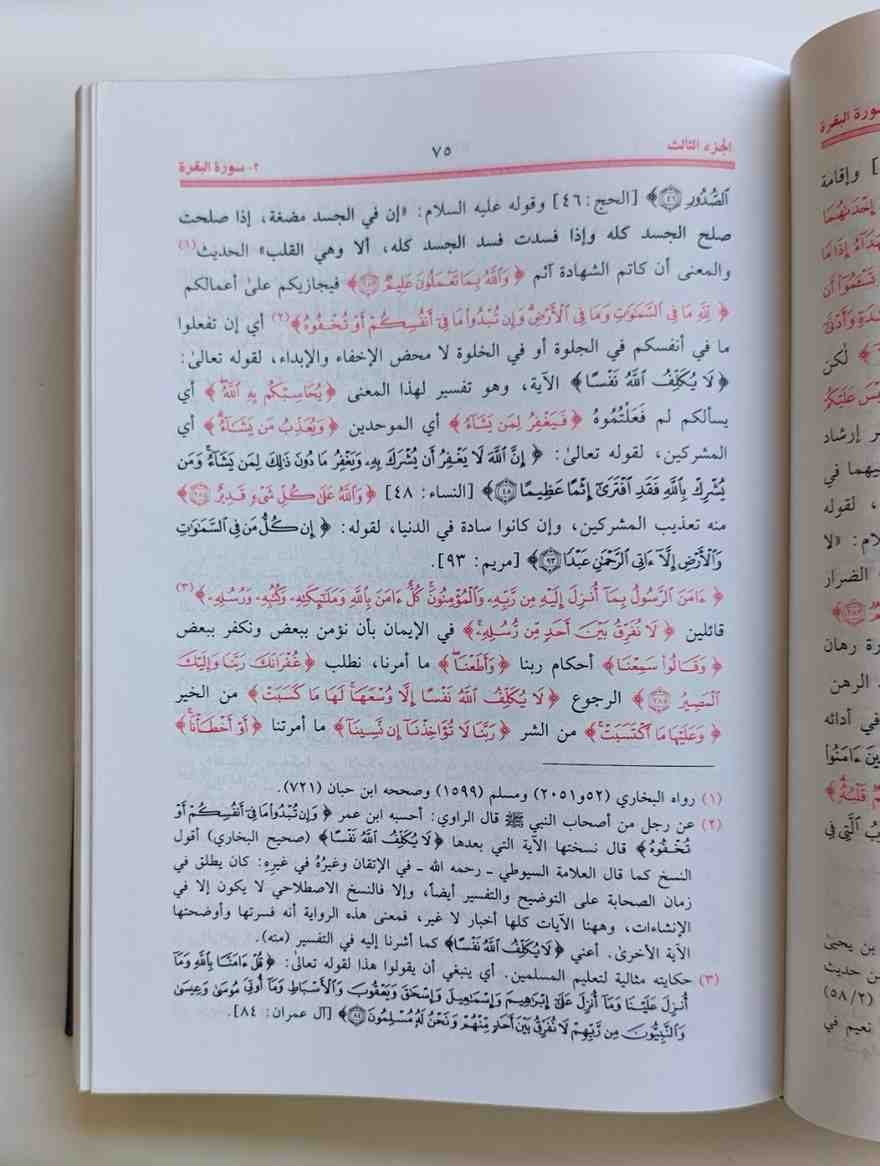 الجزء الثالث
٧٥
٢- سورة البقرة
ٱلصُّدُورِ ﴿٤٦﴾﴾ [الحج: ٤٦] وقوله عليه السلام: «إن في الجسد مضغة، إذا صلحت
صلح الجسد كله وإذا فسدت فسد الجسد كله، ألا وهي القلب» الحديث(١)
والمعنى أن كاتم الشهادة آثم ﴿وَٱللَّهُ بِمَا تَعْمَلُونَ عَلِيمٌ ﴿٢٨٣﴾﴾ فيجازيكم علىٰ أعمالكم
﴿لِلَّهِ مَا فِى ٱلسَّمَٰوَٰتِ وَمَا فِى ٱلْأَرْضِ وَإِن تُبْدُوا۟ مَا فِىٓ أَنفُسِكُمْ أَوْ تُخْفُوهُ﴾(٢) أي إن تفعلوا
ما في أنفسكم في الجلوة أو في الخلوة لا محض الإخفاء والإبداء، لقوله تعالىٰ:
﴿لَا يُكَلِّفُ ٱللَّهُ نَفْسًا﴾ الآية، وهو تفسير لهذا المعنى ﴿يُحَاسِبْكُم بِهِ ٱللَّهُ﴾ أي
يسألكم لم فَعَلْتُمُوهُ ﴿فَيَغْفِرُ لِمَن يَشَآءُ﴾ أي الموحدين ﴿وَيُعَذِّبُ مَن يَشَآءُ﴾ أي
المشركين، لقوله تعالىٰ: ﴿إِنَّ ٱللَّهَ لَا يَغْفِرُ أَن يُشْرَكَ بِهِۦ وَيَغْفِرُ مَا دُونَ ذَٰلِكَ لِمَن يَشَآءُ وَمَن
يُشْرِكْ بِٱللَّهِ فَقَدِ ٱفْتَرَىٰٓ إِثْمًا عَظِيمًا ﴿٤٨﴾﴾ [النساء: ٤٨] ﴿وَٱللَّهُ عَلَىٰ كُلِّ شَىْءٍ قَدِيرٌ ﴿٢٨٤﴾﴾
منه تعذيب المشركين، وإن كانوا سادة في الدنيا، لقوله: ﴿إِن كُلُّ مَن فِى ٱلسَّمَٰوَٰتِ
وَٱلْأَرْضِ إِلَّآ ءَاتِى ٱلرَّحْمَٰنِ عَبْدًا ﴿٩٣﴾﴾ [مريم: ٩٣].
﴿ءَامَنَ ٱلرَّسُولُ بِمَآ أُنزِلَ إِلَيْهِ مِن رَّبِّهِۦ وَٱلْمُؤْمِنُونَ كُلٌّ ءَامَنَ بِٱللَّهِ وَمَلَٰٓئِكَتِهِۦ وَكُتُبِهِۦ وَرُسُلِهِۦ﴾(٣)
قائلين ﴿لَا نُفَرِّقُ بَيْنَ أَحَدٍ مِّن رُّسُلِهِۦ﴾ في الإيمان بأن نؤمن ببعض ونكفر ببعض
﴿وَقَالُوا۟ سَمِعْنَا﴾ أحكام ربنا ﴿وَأَطَعْنَا﴾ ما أمرنا، نطلب ﴿غُفْرَانَكَ رَبَّنَا وَإِلَيْكَ
ٱلْمَصِيرُ ﴿٢٨٥﴾﴾ الرجوع ﴿لَا يُكَلِّفُ ٱللَّهُ نَفْسًا إِلَّا وُسْعَهَا لَهَا مَا كَسَبَتْ﴾ من الخير
﴿وَعَلَيْهَا مَا ٱكْتَسَبَتْ﴾ من الشر ﴿رَبَّنَا لَا تُؤَاخِذْنَآ إِن نَّسِينَآ﴾ ما أمرتنا ﴿أَوْ أَخْطَأْنَا﴾
(١) رواه البخاري (٥٢و٢٠٥١) ومسلم (١٥٩٩) وصححه ابن حبان (٧٢١).
(٢) عن رجل من أصحاب النبي ﷺ قال الراوي: أحسبه ابن عمر ﴿وَإِن تُبْدُوا۟ مَا فِىٓ أَنفُسِكُمْ أَوْ
تُخْفُوهُ﴾ قال نسختها الآية التي بعدها ﴿لَا يُكَلِّفُ ٱللَّهُ نَفْسًا﴾ (صحيح البخاري) أقول
النسخ كما قال العلامة السيوطي ـ رحمه الله ـ في الإتقان وغيرُهُ في غيرِهِ: كان يطلق في
زمان الصحابة على التوضيح والتفسير أيضاً، وإلا فالنسخ الاصطلاحي لا يكون إلا في
الإنشاءات، وههنا الآيات كلها أخبار لا غير، فمعنى هذه الرواية أنه فسرتها وأوضحتها
الآية الأخرىٰ. أعني ﴿لَا يُكَلِّفُ ٱللَّهُ نَفْسًا﴾ كما أشرنا إليه في التفسير (منه).
(٣) حكايته مثالية لتعليم المسلمين. أي ينبغي أن يقولوا هذا لقوله تعالىٰ: ﴿قُلْ ءَامَنَّا بِٱللَّهِ وَمَآ
أُنزِلَ عَلَيْنَا وَمَآ أُنزِلَ عَلَىٰٓ إِبْرَٰهِيمَ وَإِسْمَٰعِيلَ وَإِسْحَٰقَ وَيَعْقُوبَ وَٱلْأَسْبَاطِ وَمَآ أُوتِىَ مُوسَىٰ وَعِيسَىٰ
وَٱلنَّبِيُّونَ مِن رَّبِّهِمْ لَا نُفَرِّقُ بَيْنَ أَحَدٍ مِّنْهُمْ وَنَحْنُ لَهُۥ مُسْلِمُونَ ﴿٨٤﴾﴾ [آل عمران: ٨٤].
سورة البقرة
] وإقامة
﴾ لكن
ر إرشاد
، لقوله
لام: «لا
الضرار
رة رهان
الرهن
في أدائه
بن يحيىٰ
من حديث
(٥٨/٢)
نعيم في